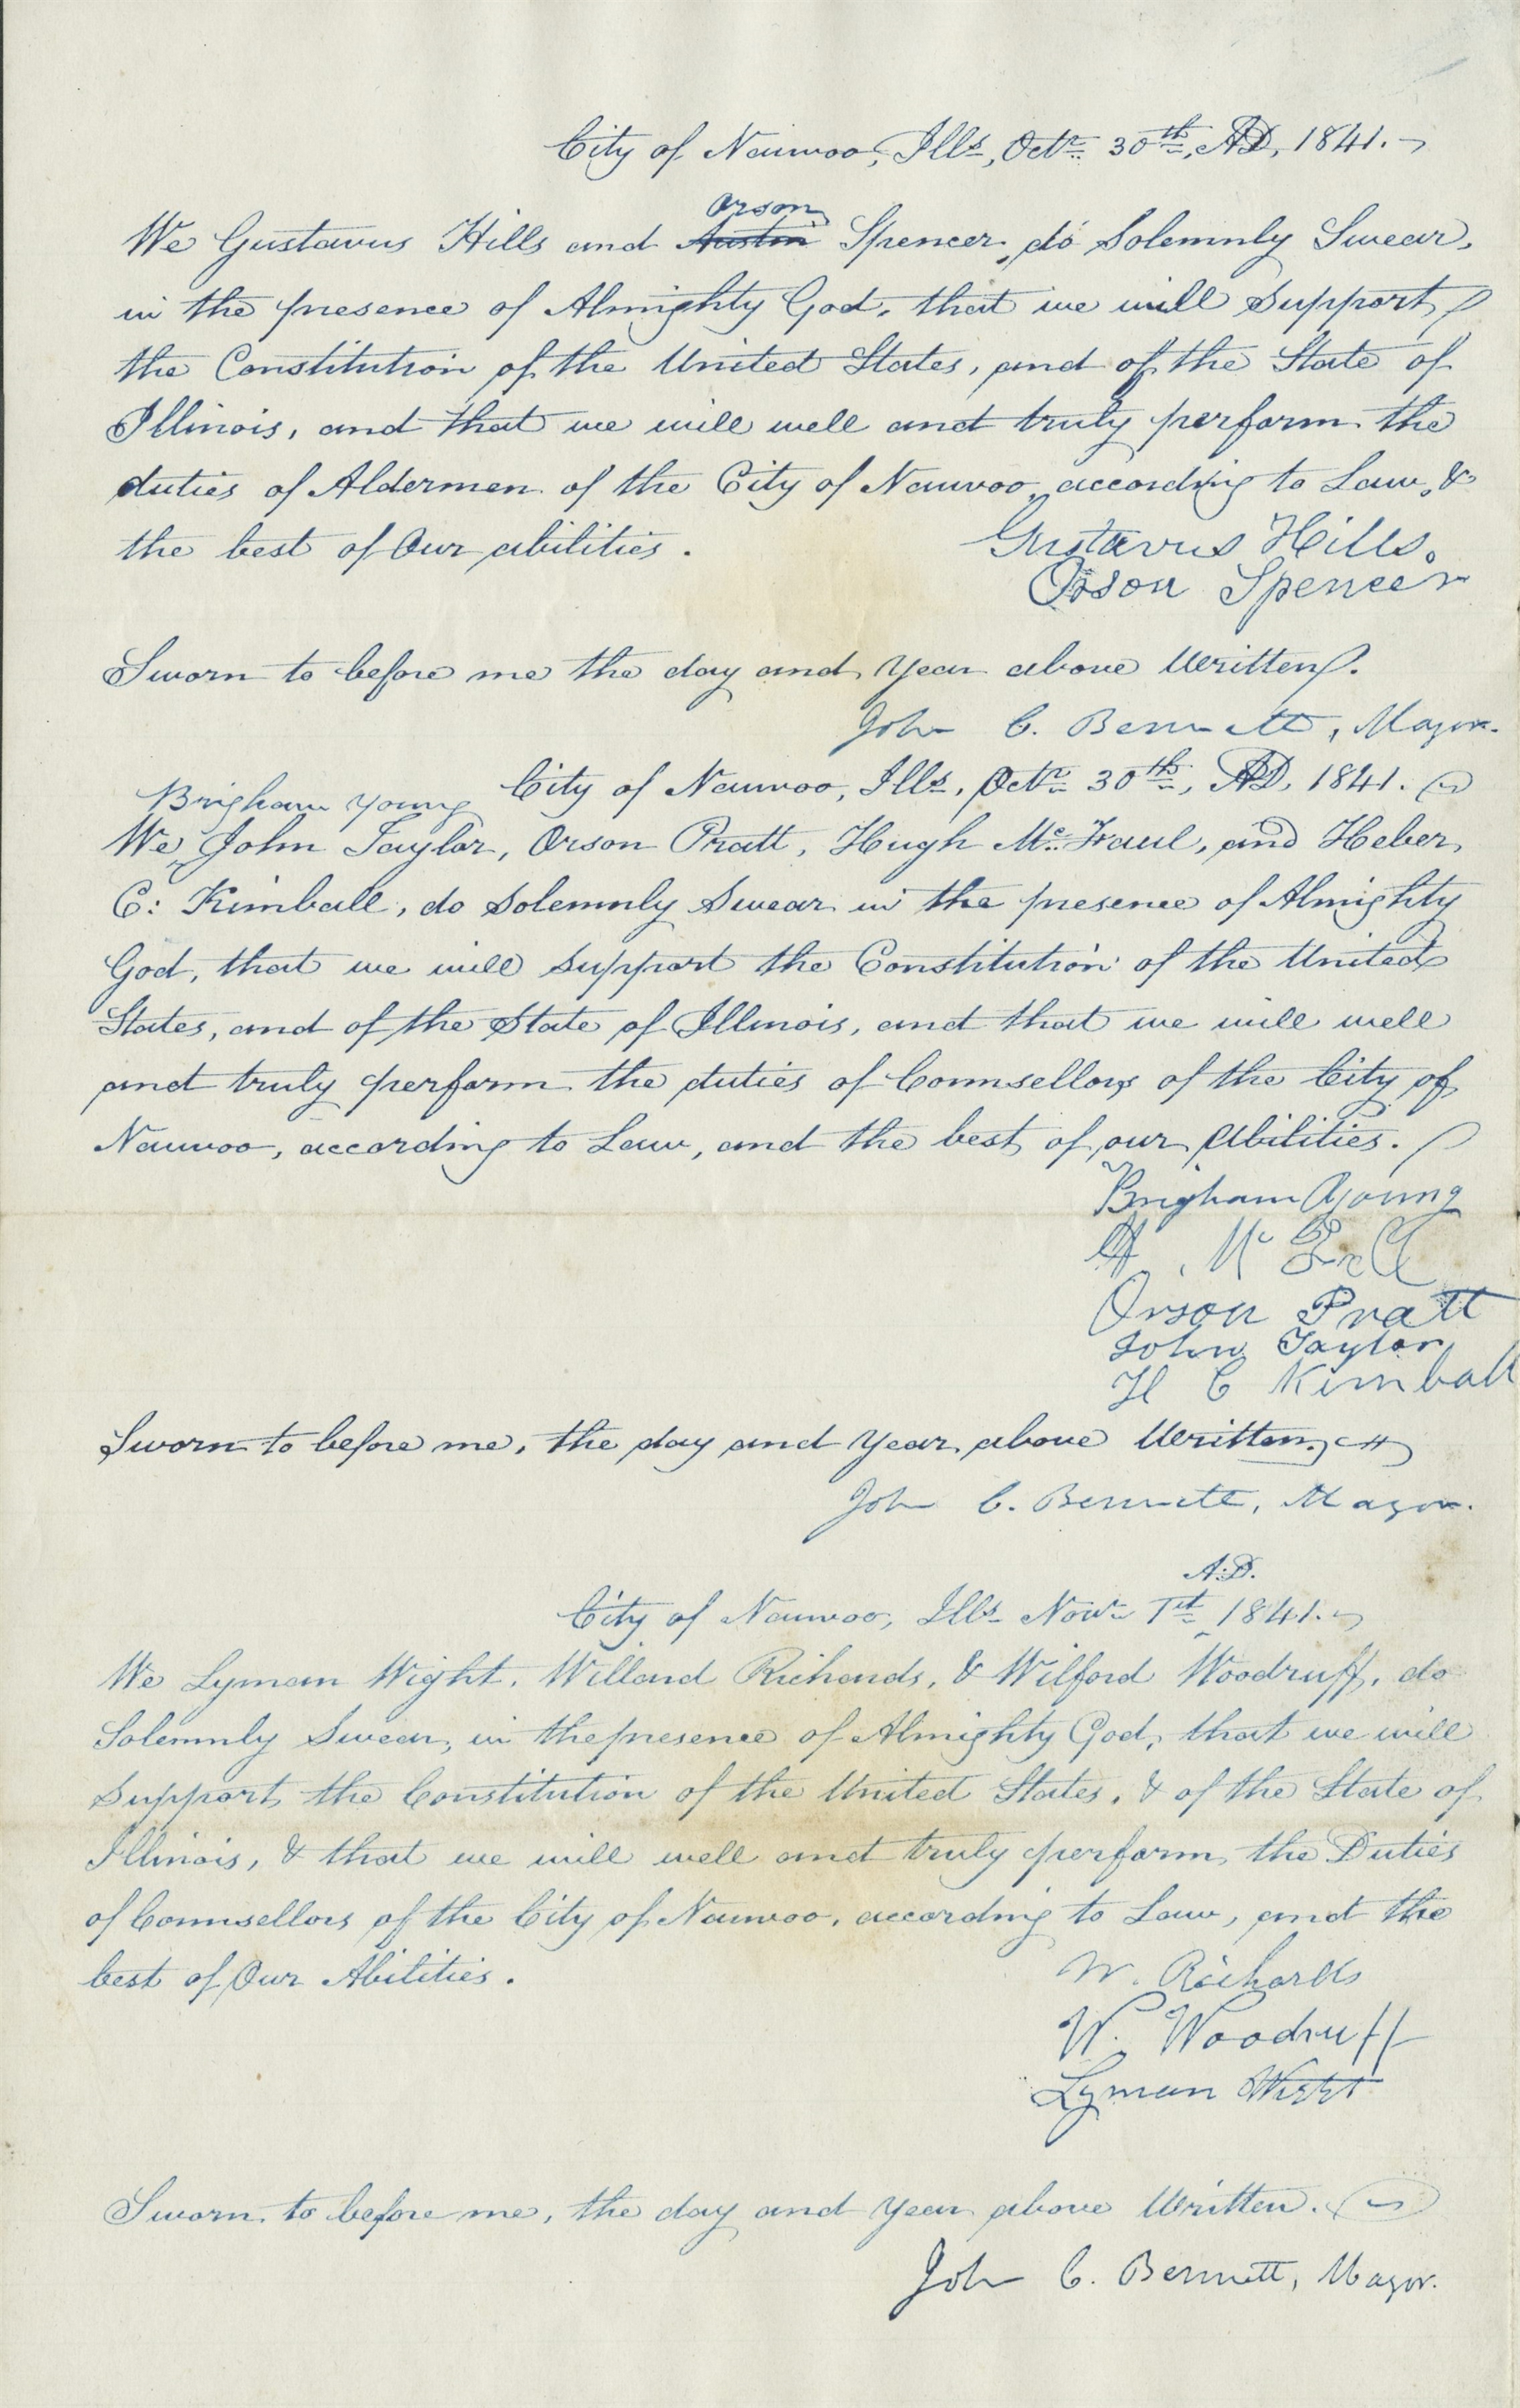 City of Nauvoo, Ills, Octr 30th, AD, 1841.
Orson
We Gustavus Hills and Austin Spencer, do Solemnly Swear,
in the presence of Almighty God, that we will Support
the Constitution of the United States, and of the State of
Illinois, and that we will well and truly perform the
duties of Aldermen of the City of Nauvoo, according to Law, &
the best of Our abilities.
Gustavus Hills.
Orson Spencer
Sworn to before me the day and Year above Written.
John C. Bennett, Mayor.
City of Nauvoo, Ills, Octr 30th, AD, 1841.
Brigham Young
We John Taylor, Orson Pratt, Hugh Mc.Fraul, and Heber
C: Kimball, do Solemnly Swear in the presence of Almighty
God, that we will Support the Constitution of the United
States, and of the State of Illinois, and that we will well
and truly perform the duties of Counsellors of the City of
Nauvoo, according to Law, and the best of our Abilities.
Brigham Young
H. Mc
Orson Pratt
John Taylor
H C Kimball
Sworn to before me, the day and Year above Written,
John C. Bennett, Mayor.
A.D.
City of Nauvoo, Ills Novr 1st 1841.
We Lyman Wight, Willard Richards, & Wilford Woodruff, do
Solemnly Swear, in the presence of Almighty God, that we will
Support the Constitution of the United States, & of the State of
Illinois, & that we will well and truly perform the Duties
of Counsellors of the City of Nauvoo, according to Law, and the
best of Our Abilities.
W. Richards
W. Woodruff
Lyman Wight
Sworn to before me, the day and Year above Written.
John C. Bennett, Mayor.